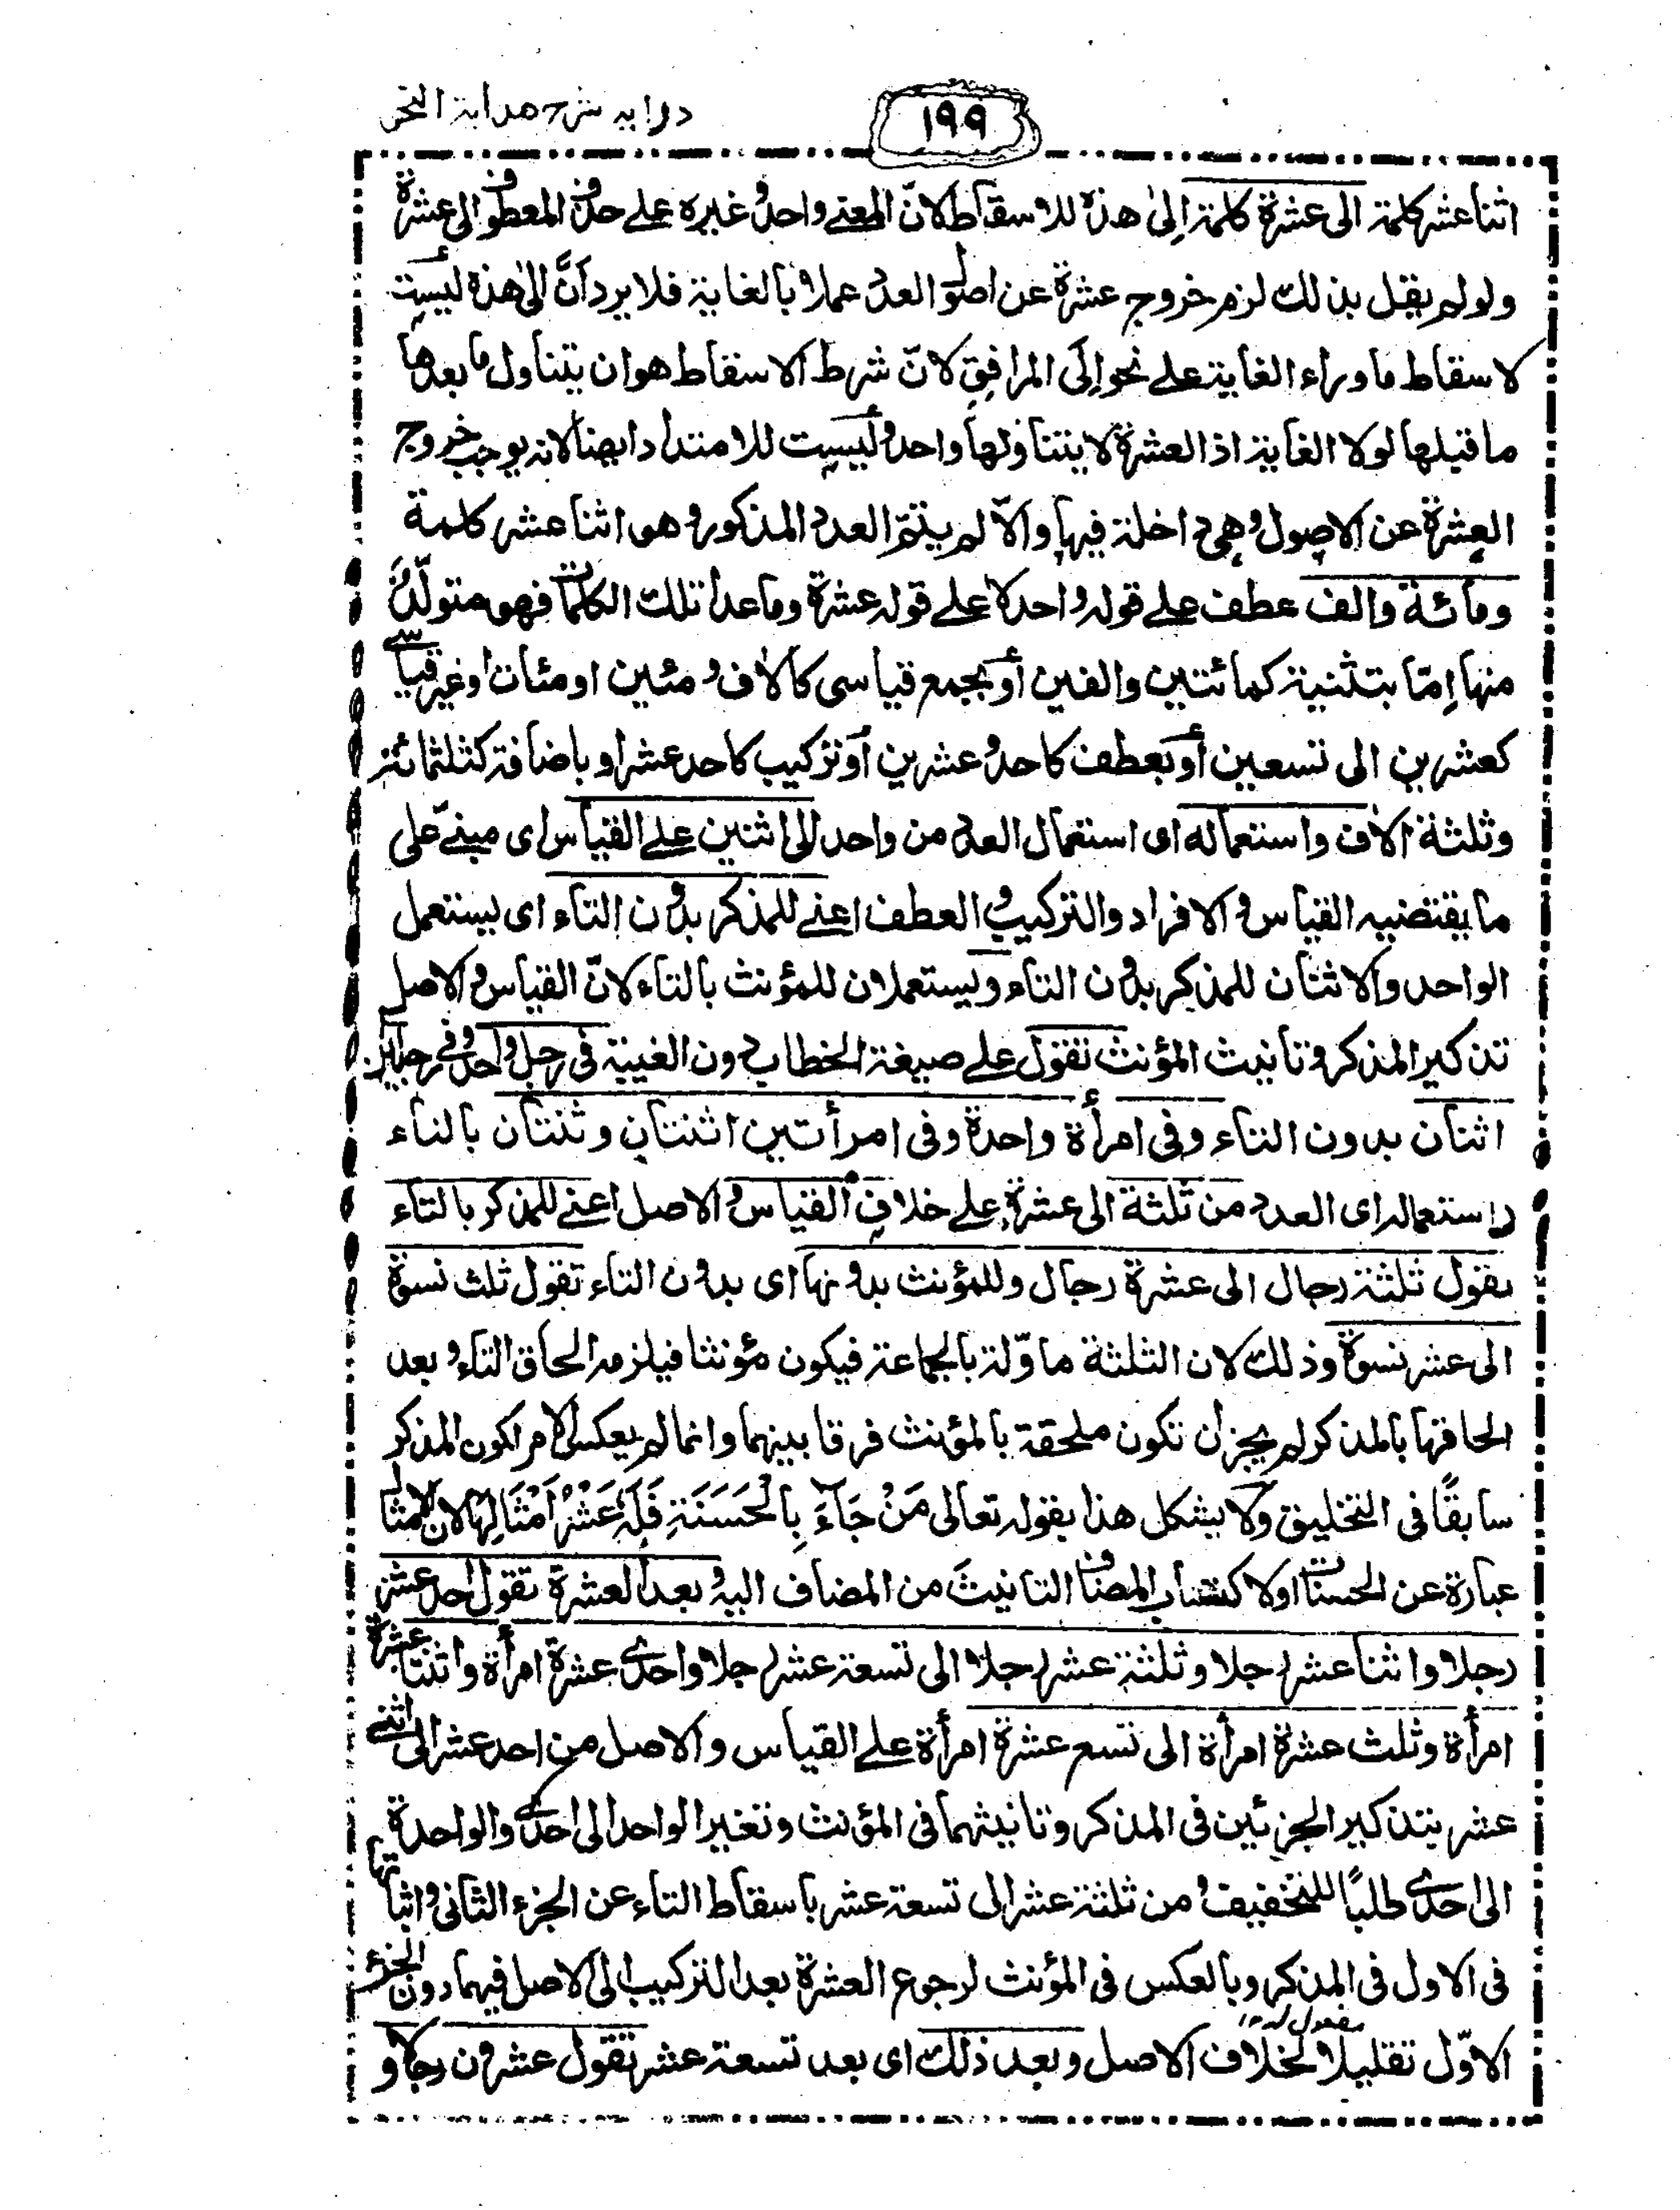 ١٩٩
درايه شرح هداية النحو
اثنا عشر كلمة الى عشرة كلمة الى هذه للاسقاط لانّ المعنى واحد وغيره على حذف المعطوف الى عشرة
ولو لم يقل بذلك لزم خروج عشرة عن اصول العدد عملا بالغاية فلا يرد أنَّ الى هذه ليست
لاسقاط ما وراء الغاية على نحو اِلَى المرافِقِ لانّ شرط الاسقاط هو ان يتناول ما بعدها
ما قبلها لولا الغاية اذ العشرة لا يتناولها واحد وليست للامتداد ايضا لانه يوجب خروج
العشرة عن الاصول وهى داخلة فيها والّا لم يتمّ العدد المذكور وهو اثنا عشر كلمة
ومائة والف عطف على قوله واحد لا على قوله عشرة وما عدا تلك الكلمات فهو متولّد
منها اِمّا بتثنية كمائتين والفين أو بجمع قياسى كالاف ومئين او مئات او غير قياسى
كعشرين الى تسعين أو بعطف كاحد وعشرين أو تركيب كاحد عشر او باضافة كثلثمائة
وثلثة الاف واستعماله اى استعمال العدد من واحد الى اثنين على القياس اى مبنىّ على
ما يقتضيه القياس فى الافراد والتركيب والعطف اعنى للمذكر بدون التاء اى يستعمل
الواحد والاثنان للمذكر بدون التاء ويستعملان للمؤنث بالتاء لانّ القياس والاصل
تذكير المذكر وتانيث المؤنث تقول على صيغة الخطاب دون الغيبة فى رجل واحد وفى رجلين
اثنان بدون التاء وفى امرأة واحدة وفى امرأتين اثنتان وثنتان بالتاء
واستعماله اى العدد من ثلثة الى عشرة على خلاف القياس والاصل اعنى للمذكر بالتاء
تقول ثلثة رجال الى عشرة رجال وللمؤنث بدونها اى بدون التاء تقول ثلث نسوة
الى عشر نسوة وذلك لان الثلثة ماوّلة بالجماعة فيكون مؤنثا فيلزمه الحاق التاء وبعد
الحاقها بالمذكر لم يجز أن تكون ملحقة بالمؤنث فرقا بينهما وانما لم يعكس الامر لكون المذكر
سابقًا فى التخليق ولا يشكل هذا بقوله تعالى مَنْ جَآءَ بِالْحَسَنَةِ فَلَهٗ عَشْرُ اَمْثَالِهَا لان الامثال
عبارة عن الحسنات او لاكتساب المضاف التانيثَ من المضاف اليه وبعد العشرة تقول احد عشر
رجلا واثنا عشر رجلا وثلثة عشر رجلا الى تسعة عشر رجلا واحدى عشرة امرأة واثنتا عشرة
امرأة وثلث عشرة امرأة الى تسع عشرة امرأة على القياس والاصل من احد عشر الى اثنى
عشر بتذكير الجزئين فى المذكر وتانيثهما فى المؤنث وتغير الواحد الى احد والواحدة
الى احدى طلبًا للتخفيف ومن ثلثة عشر الى تسعة عشر باسقاط التاء عن الجزء الثانى واثباتها
فى الاول فى المذكر وبالعكس فى المؤنث لرجوع العشرة بعد التركيب الى الاصل فيهما دون الجزء
مفعول له ١٢
الاوّل تقليلا لخلاف الاصل وبعد ذلك اى بعد تسعة عشر تقول عشرون رجلا و